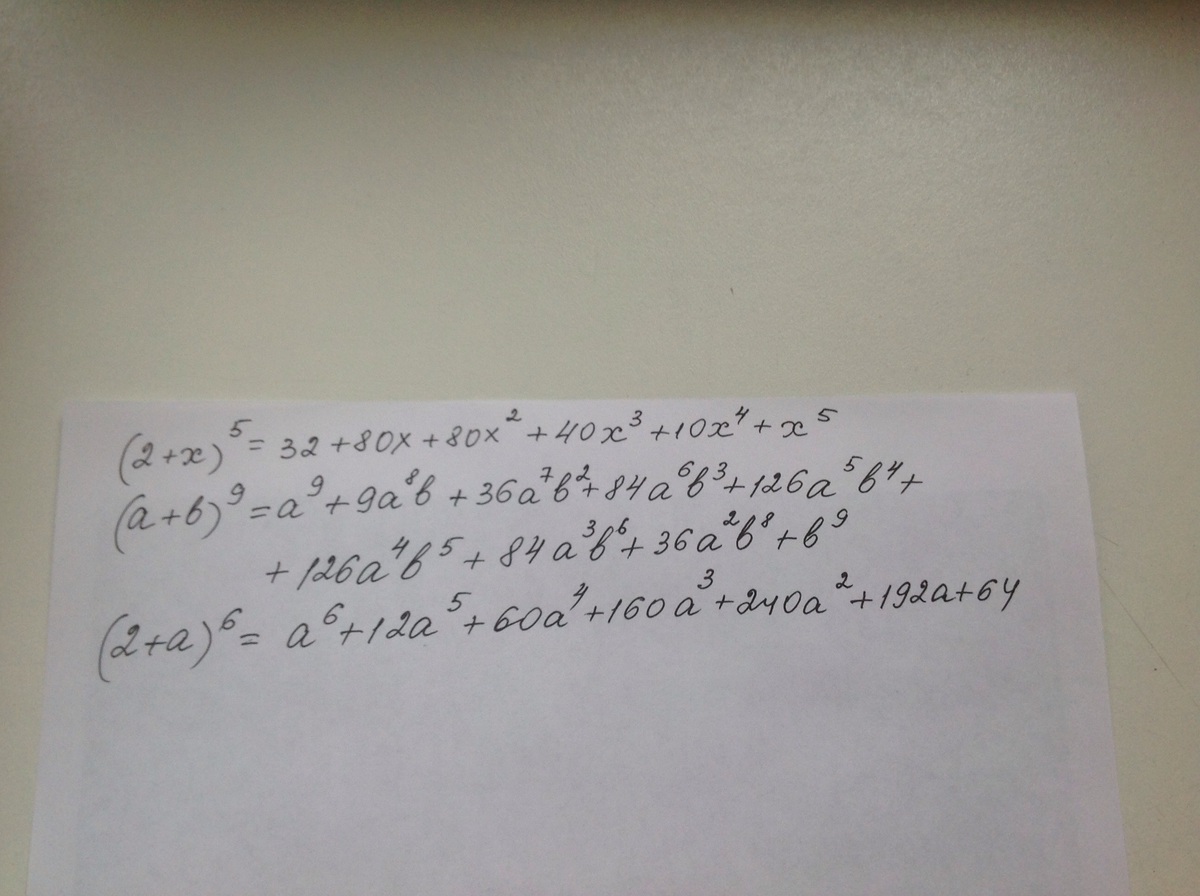 (2+x)⁵= 32+80x+80x²+40x³+10x⁴+x⁵
(a+b)⁹=a⁹+9a⁸b+36a⁷b²+84a⁶b³+126a⁵b⁴+
+126a⁴b⁵+84a³b⁶+36a²b⁸+b⁹
(2+a)⁶= a⁶+12a⁵+60a⁴+160a³+240a²+192a+64